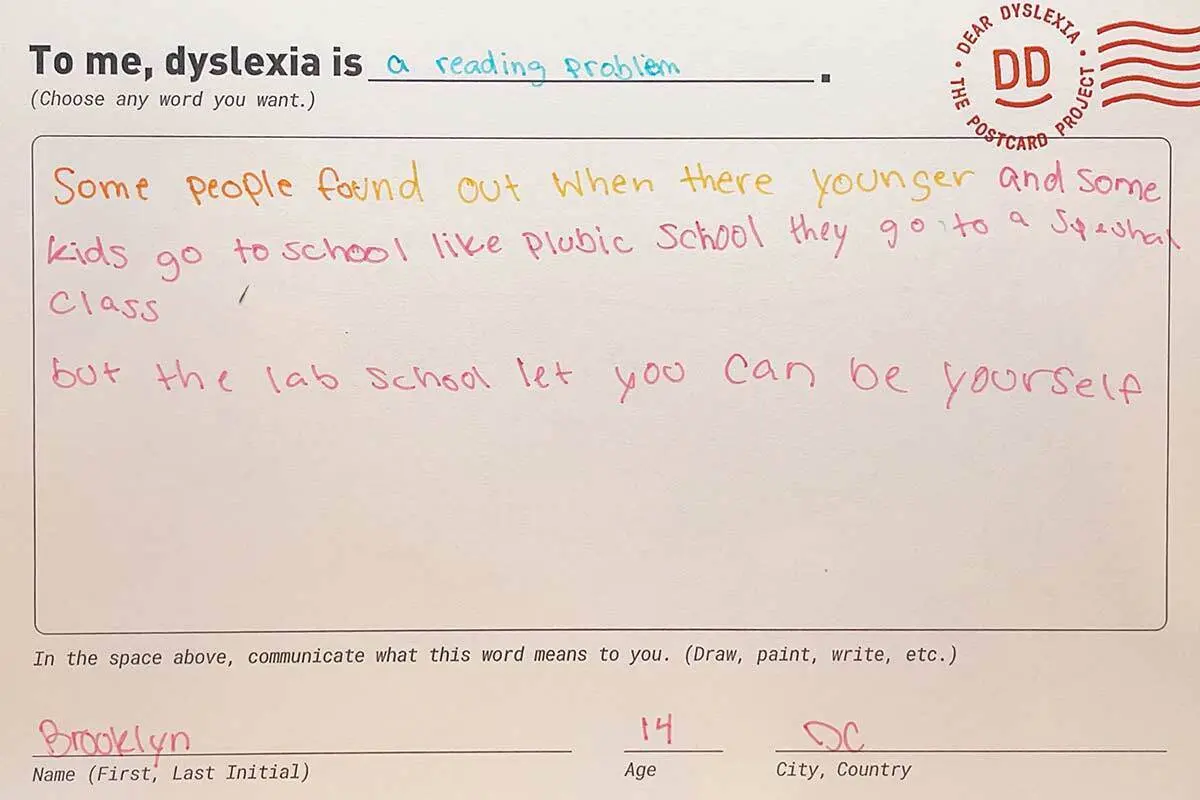 To me, dyslexia is a reading problem.
(Choose any word you want.)
DEAR DYSLEXIA • THE POSTCARD PROJECT •
DD
Some people found out when there younger and some
kids go to school like plubic school they go to a speshal
class
but the lab school let you can be yourself
In the space above, communicate what this word means to you. (Draw, paint, write, etc.)
Brooklyn 14 DC
Name (First, Last Initial) Age City, Country